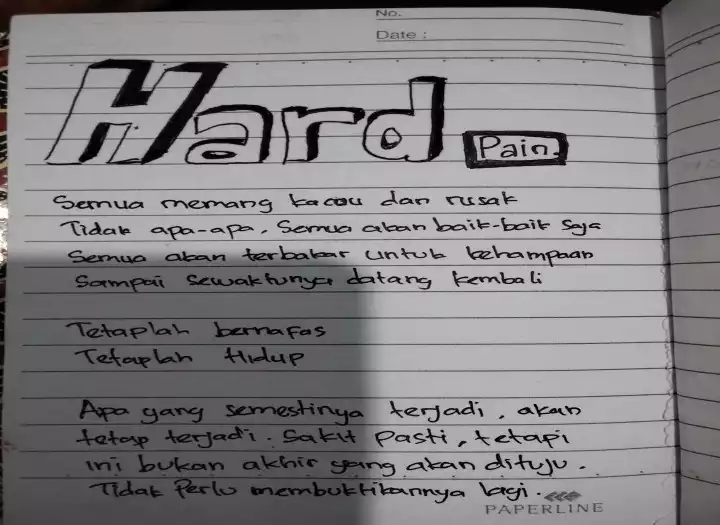 No.
Date :
Hard
Pain.
Semua memang kacau dan rusak
Tidak apa-apa, Semua akan baik-baik saja
Semua akan terbakar untuk kehampaan
Sampai sewaktunya datang kembali
Tetaplah bernafas
Tetaplah Hidup
Apa yang semestinya terjadi, akan
tetap terjadi. Sakit Pasti, tetapi
ini bukan akhir yang akan dituju.
Tidak Perlu membuktikannya lagi.
PAPERLINE